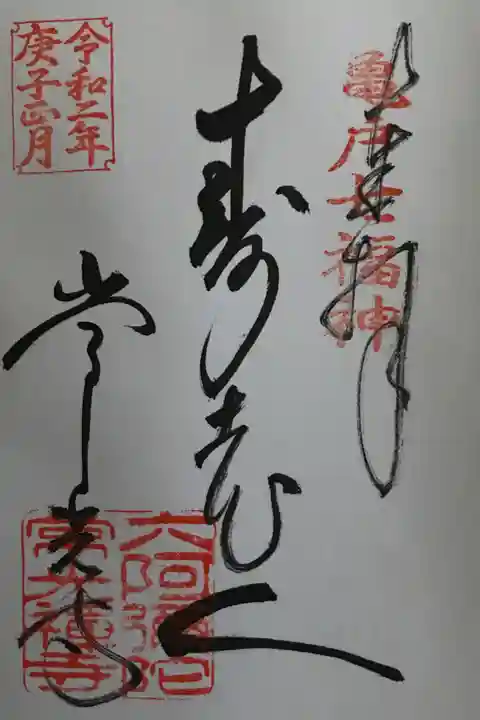 奉拝
亀戸七福神
寿老人
令和二年
庚子正月
常光寺
六阿弥陀
常光禅寺